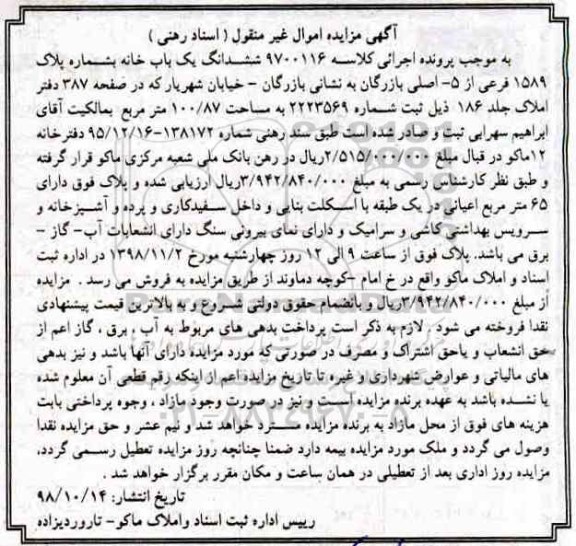 آگهی مزایده اموال غیر منقول ( اسناد رهنی )
به موجب پرونده اجرائی کلاسه ۹۷۰۰۱۱۶ ششدانگ یک باب خانه بشماره پلاک
۱۵۸۹ فرعی از ۵- اصلی بازرگان به نشانی بازرگان - خیابان شهریار که در صفحه ۳۸۷ دفتر
املاک جلد ۱۸۶ ذیل ثبت شماره ۲۲۲۳۵۶۹ به مساحت ۱۰۰/۸۷ متر مربع بمالکیت آقای
ابراهیم سهرابی ثبت و صادر شده است طبق سند رهنی شماره ۱۳۸۱۷۲-۹۵/۱۲/۱۶ دفترخانه
۱۲ماکو در قبال مبلغ ۲/۵۱۵/۰۰۰/۰۰۰ریال در رهن بانک ملی شعبه مرکزی ماکو قرار گرفته
و طبق نظر کارشناس رسمی به مبلغ ۳/۹۴۲/۸۴۰/۰۰۰ریال ارزیابی شده و پلاک فوق دارای
۶۵ متر مربع اعیانی در یک طبقه با اسکلت بنایی و داخل سفیدکاری و پرده و آشپزخانه و
سرویس بهداشتی کاشی و سرامیک و دارای نمای بیرونی سنگ دارای انشعابات آب- گاز -
برق می باشد. پلاک فوق از ساعت ۹ الی ۱۲ روز چهارشنبه مورخ ۱۳۹۸/۱۱/۲ در اداره ثبت
اسناد و املاک ماکو واقع در خ امام -کوچه دماوند از طریق مزایده به فروش می رسد . مزایده
از مبلغ ۳/۹۴۲/۸۴۰/۰۰۰ریال و بانضمام حقوق دولتی شروع و به بالاترین قیمت پیشنهادی
نقدا فروخته می شود . لازم به ذکر است پرداخت بدهی های مربوط به آب ، برق ، گاز اعم از
حق انشعاب و یاحق اشتراک و مصرف در صورتی که مورد مزایده دارای آنها باشد و نیز بدهی
های مالیاتی و عوارض شهرداری و غیره تا تاریخ مزایده اعم از اینکه رقم قطعی آن معلوم شده
یا نشده باشد به عهده برنده مزایده است و نیز در صورت وجود مازاد ، وجوه پرداختی بابت
هزینه های فوق از محل مازاد به برنده مزایده مسترد خواهد شد و نیم عشر و حق مزایده نقدا
وصول می گردد و ملک مورد مزایده بیمه دارد ضمنا چنانچه روز مزایده تعطیل رسمی گردد،
مزایده روز اداری بعد از تعطیلی در همان ساعت و مکان مقرر برگزار خواهد شد .
تاریخ انتشار: ۹۸/۱۰/۱۴
رییس اداره ثبت اسناد واملاک ماکو- تاروردیزاده
ParsNamadData
۰۲۱-۸۸۳۴۹۶۷۰-۵